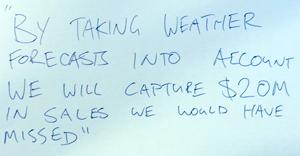 "BY TAKING WEATHER
FORECASTS INTO ACCOUNT
WE WILL CAPTURE $20M
IN SALES WE WOULD HAVE
MISSED"